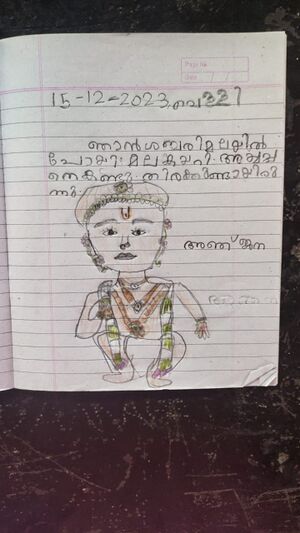 Page No.
Date
15-12-2023 വെള്ളി
ഞാൻ ശബരിമലയിൽ
പോയി. മലകയറി. അയ്യപ്പ
നെകണ്ടു. തിരക്കുണ്ടായിരു
ന്നു.
അഞ്ജന